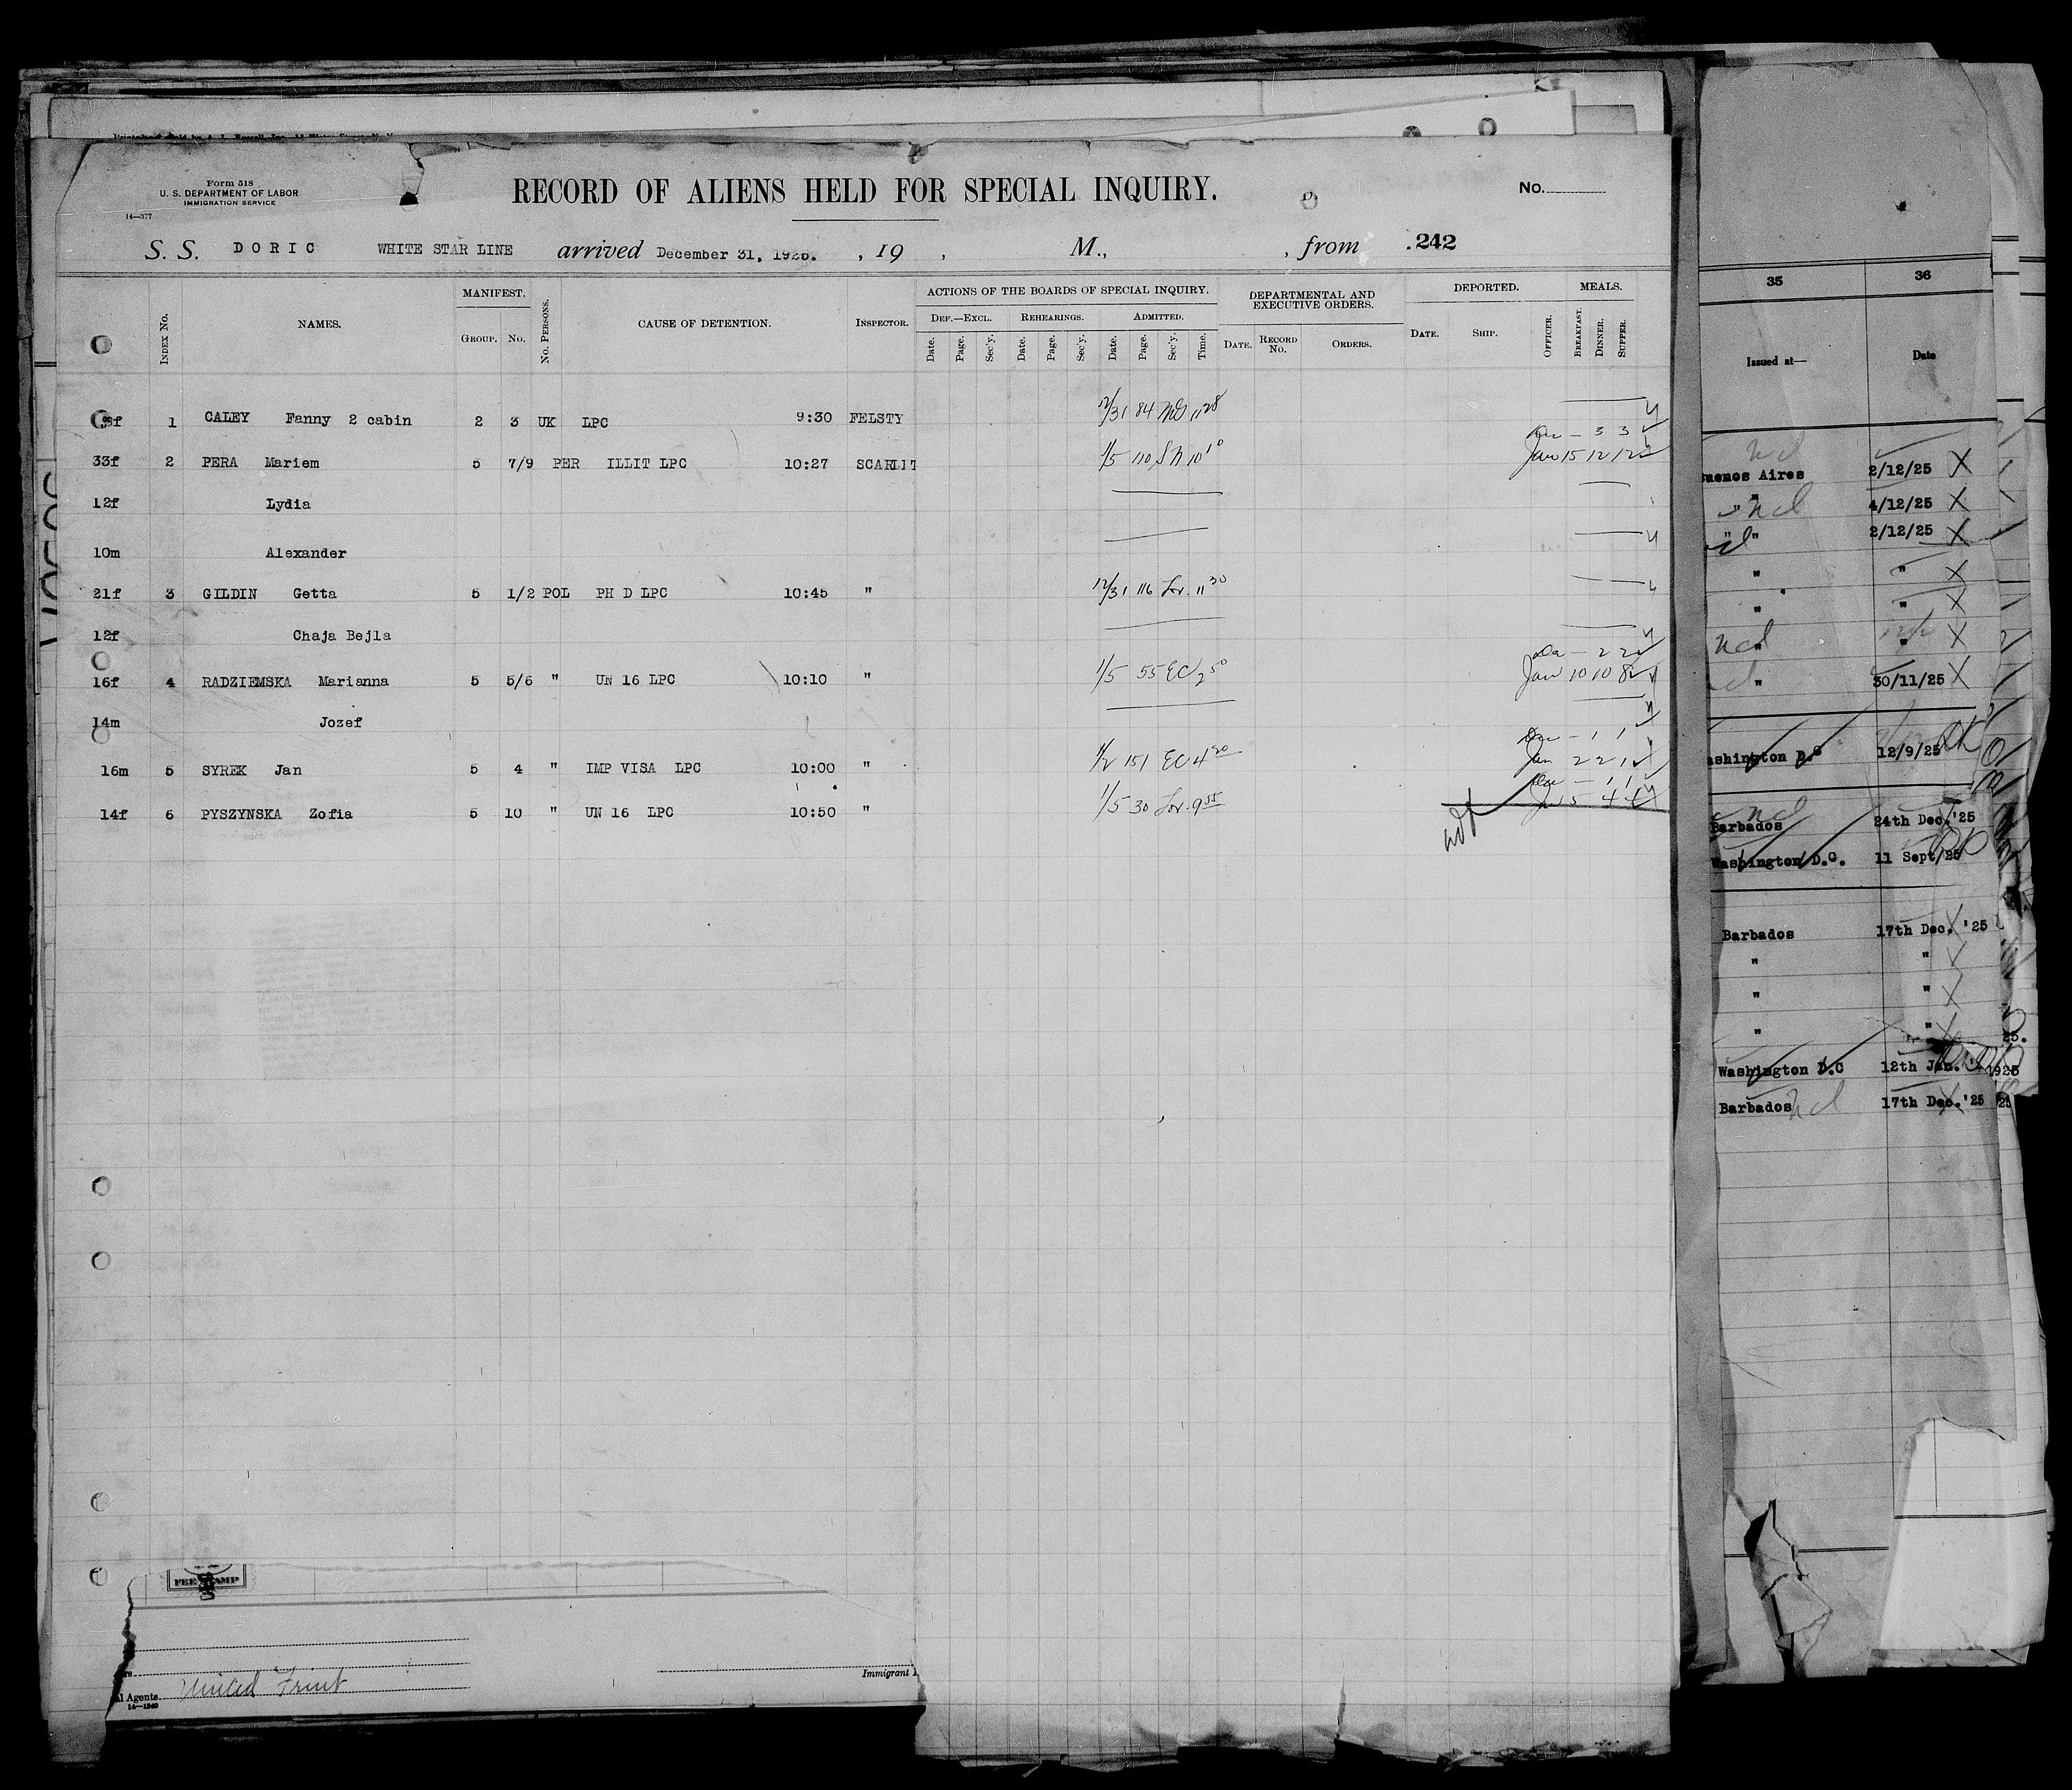 Form 518
U. S. DEPARTMENT OF LABOR
IMMIGRATION SERVICE
14—377
RECORD OF ALIENS HELD FOR SPECIAL INQUIRY.
No.
S. S. DORIC WHITE STAR LINE arrived December 31, 1925. , 19 , M., , from .242
INDEX No. NAMES. MANIFEST. GROUP. No. No. PERSONS. CAUSE OF DETENTION. INSPECTOR. ACTIONS OF THE BOARDS OF SPECIAL INQUIRY. DEF.—EXCL. REHEARINGS. ADMITTED. DEPARTMENTAL AND EXECUTIVE ORDERS. DEPORTED. MEALS.
Date. Page. Sec'y. Date. Page. Sec'y. Date. Page. Sec'y. Time. DATE. RECORD No. ORDERS. DATE. SHIP. OFFICER. BREAKFAST. DINNER. SUPPER.
1 CALEY Fanny 2 cabin 2 3 UK LPC 9:30 FELSTY 12/31 84 11 28
33f 2 PERA Mariem 5 7/9 PER ILLIT LPC 10:27 SCARLIT 1/5 110 10 10 Jan 15 12 12
12f Lydia
10m Alexander
21f 3 GILDIN Getta 5 1/2 POL PH D LPC 10:45 " 12/31 116 11 30
12f Chaja Bejla
16f 4 RADZIEMSKA Marianna 5 5/6 " UN 16 LPC 10:10 " 1/5 55 EC 2 50 Jan 10 10 8
14m Jozef
16m 5 SYREK Jan 5 4 " IMP VISA LPC 10:00 " 1/2 151 EC 4 20 Jan 2 2 1
14f 6 PYSZYNSKA Zofia 5 10 " UN 16 LPC 10:50 " 1/5 30 9 55
FEE STAMP
Immigrant
Agents United Fruit
14—1240
35 36
Issued at— Date
Buenos Aires 2/12/25 X
" 4/12/25 X
" " 2/12/25 X
" " X
" " X
" " X
" 30/11/25 X
Washington D.C 12/9/25
Barbados 24th Dec.'25
Washington D.C. 11 Sept/25
Barbados 17th Dec. '25
" "
" " X
" "
25.
Washington D.C 12th Jan. 1925
Barbados 17th Dec.'25